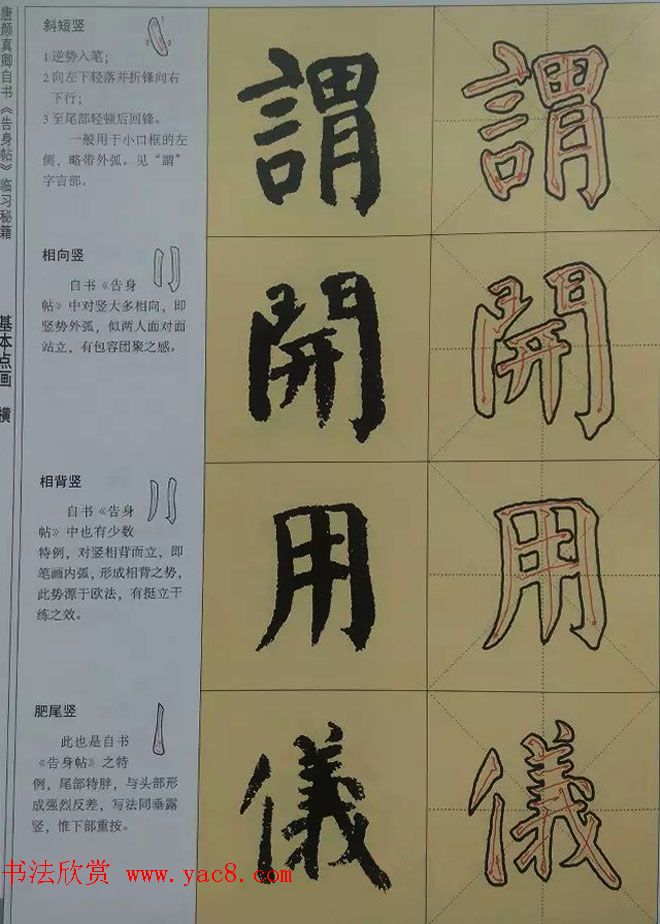 唐颜真卿自书《告身帖》临习秘籍
基本点画 横
斜短竖
1
2
3
1 逆势入笔；
2 向左下轻落并折锋向右
下行；
3 至尾部轻顿后回锋。
一般用于小口框的左
侧，略带外弧。见“謂”
字言部。
謂
謂
相向竖
自书《告身
帖》中对竖大多相向，即
竖势外弧，似两人面对面
站立，有包容团聚之感。
開
開
相背竖
自书《告身
帖》中也有少数
特例，对竖相背而立，即
笔画内弧，形成相背之势，
此势源于欧法，有挺立干
练之效。
用
用
肥尾竖
此也是自书
《告身帖》之特
例，尾部特胖，与头部形
成强烈反差，写法同垂露
竖，惟下部重按。
儀
儀
书法欣赏 www.yac8.com